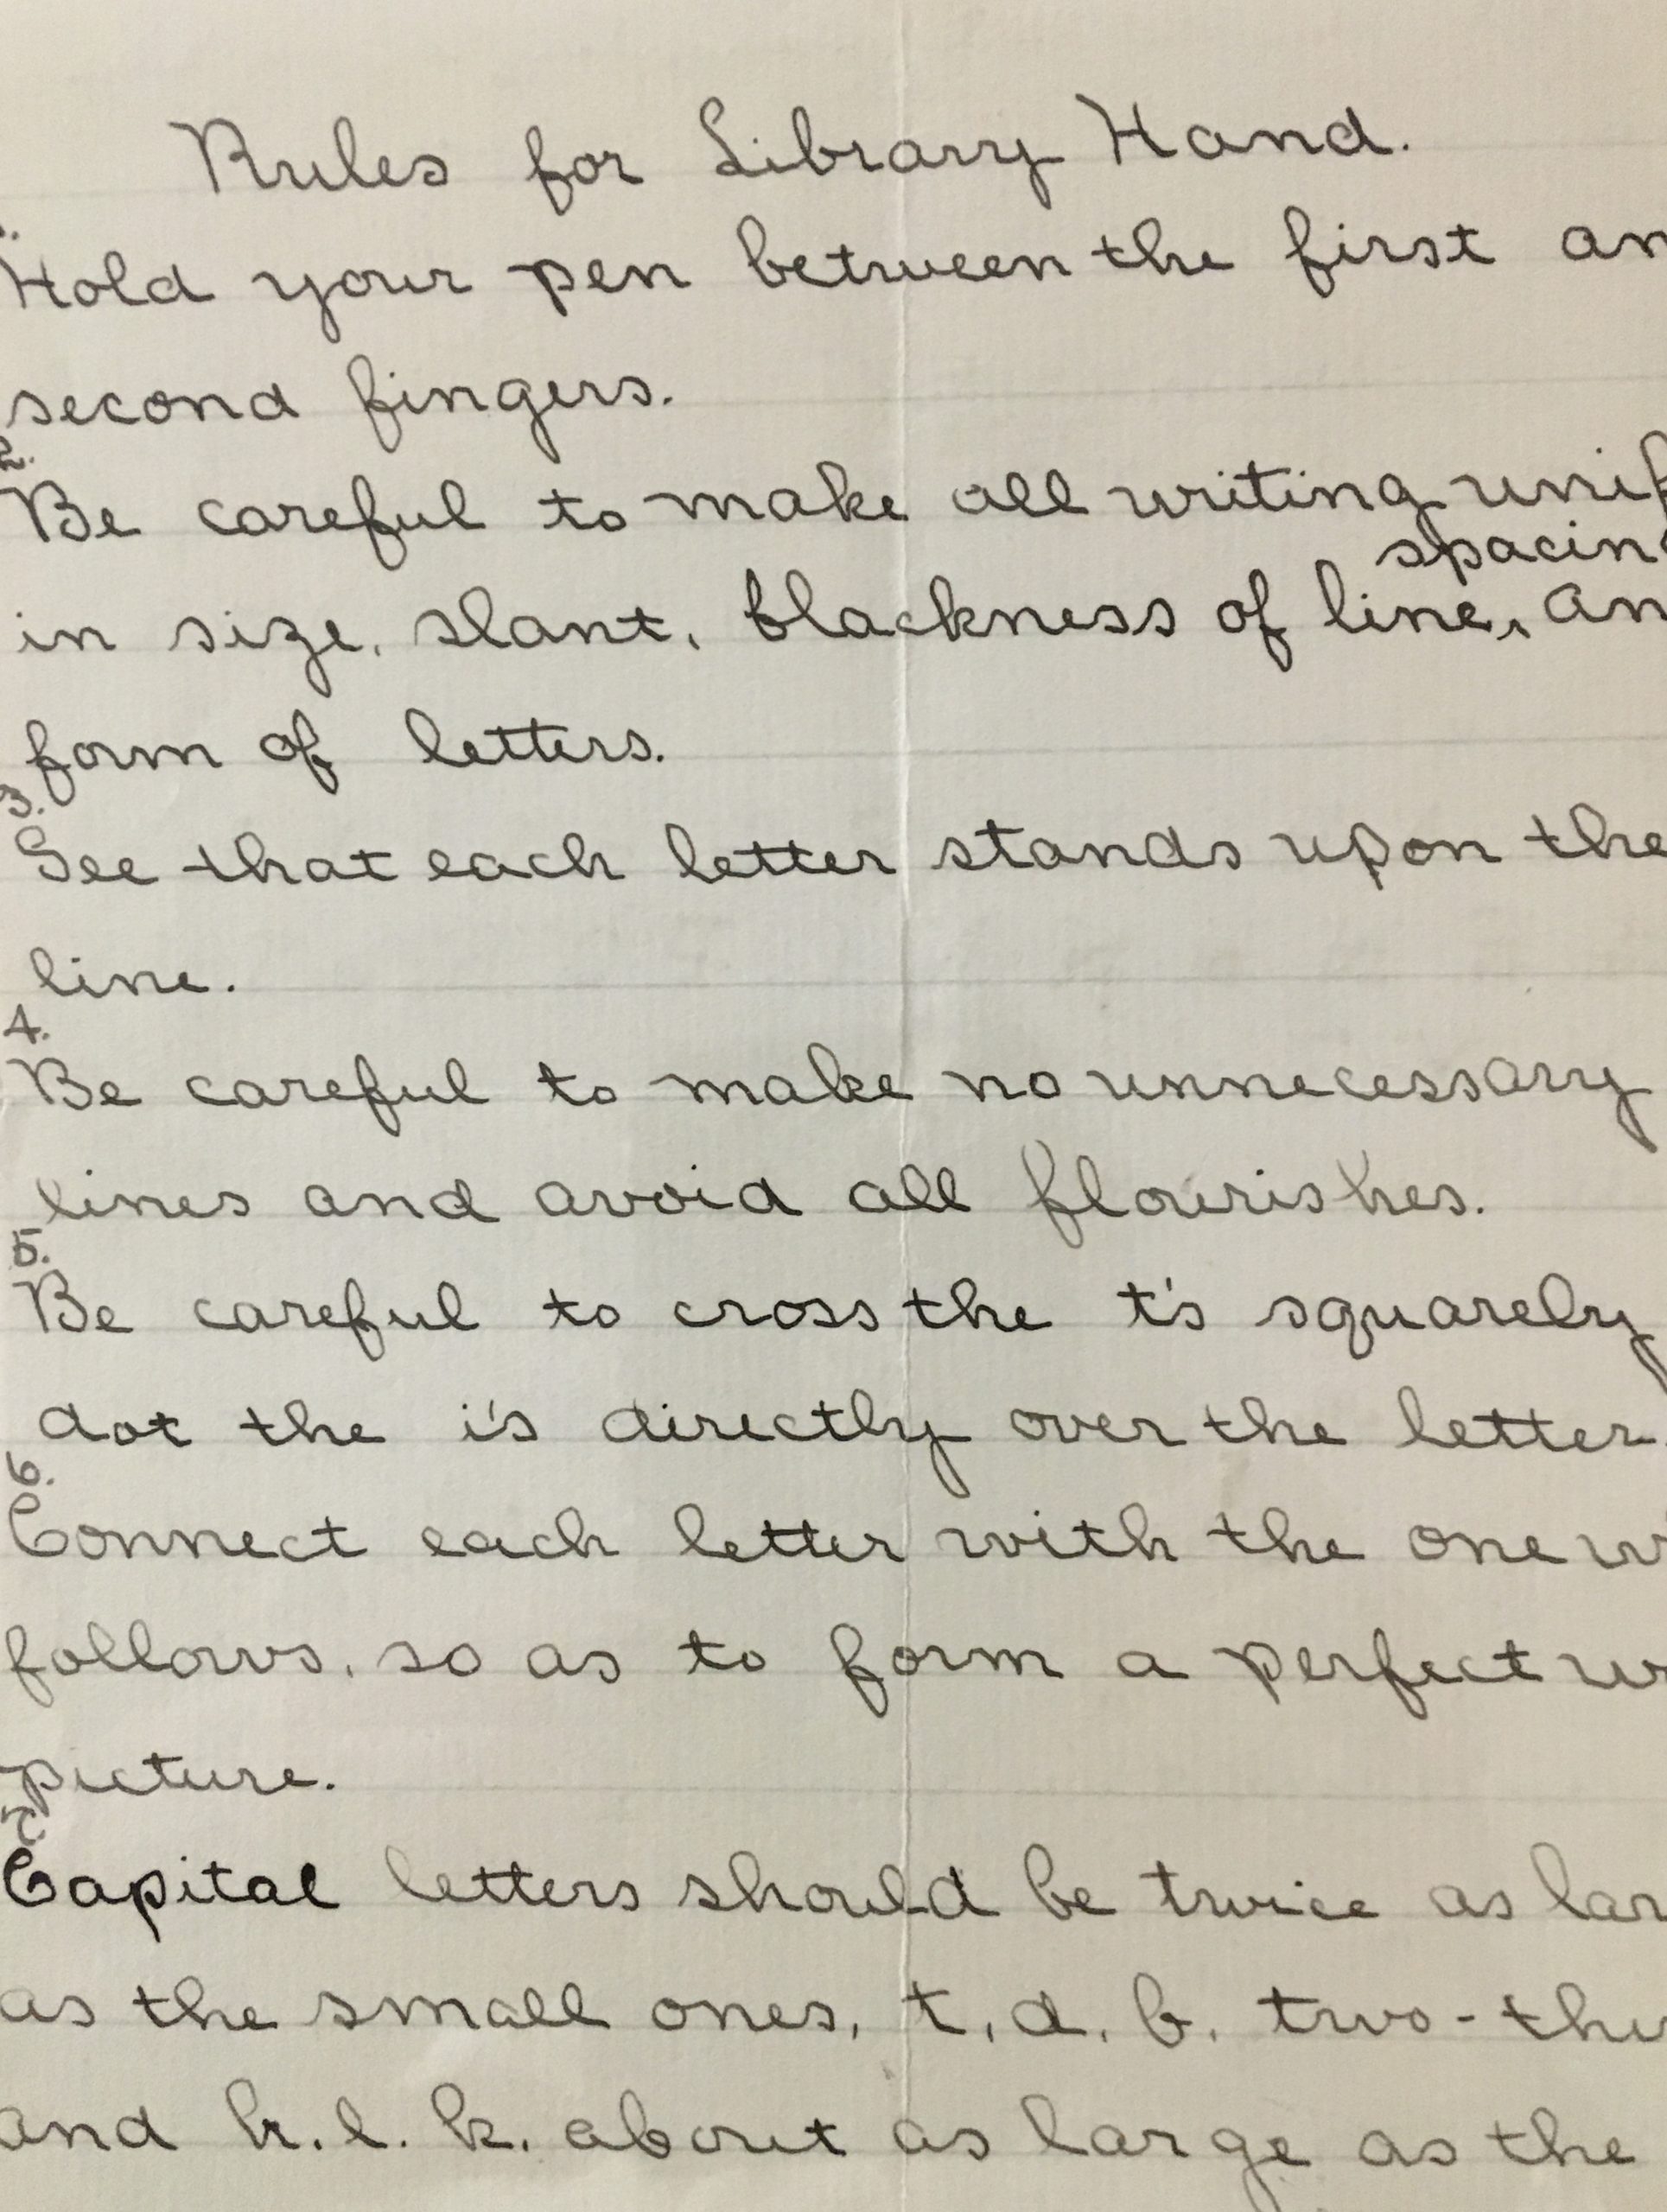 Rules for Library Hand.
1.
Hold your pen between the first an
second fingers.
2.
Be careful to make all writing unif
spacing
in size, slant, blackness of line, an
form of letters.
3.
See that each letter stands upon the
line.
4.
Be careful to make no unnecessary
lines and avoid all flourishes.
5.
Be careful to cross the t's squarely
dot the i's directly over the letter.
6.
Connect each letter with the one w
follows, so as to form a perfect w
picture.
Capital letters should be twice as lar
as the small ones, t, d, b, two-thi
and h. l. k. about as large as the